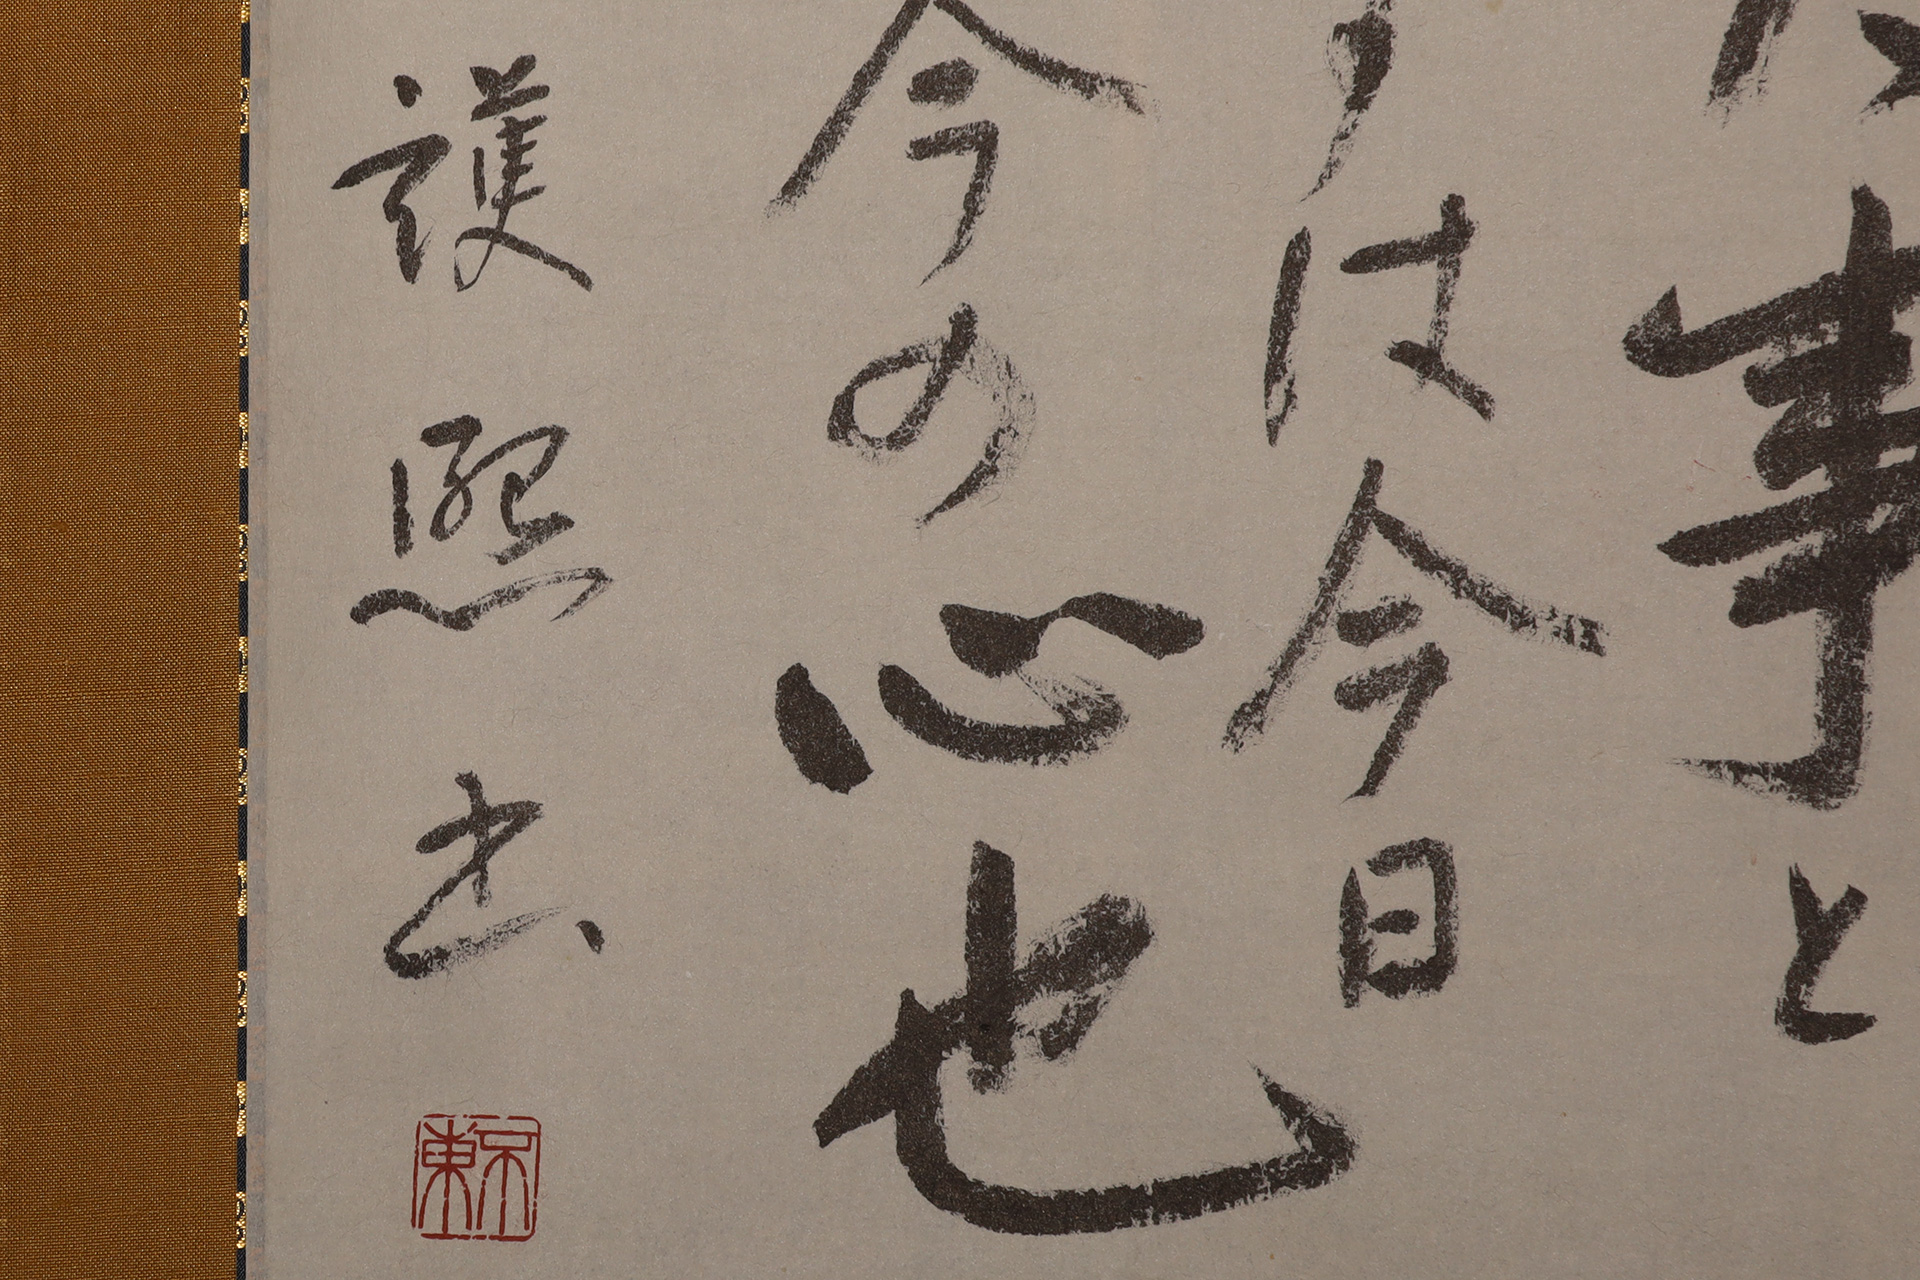 事と
は今日
今の心也
護熙書